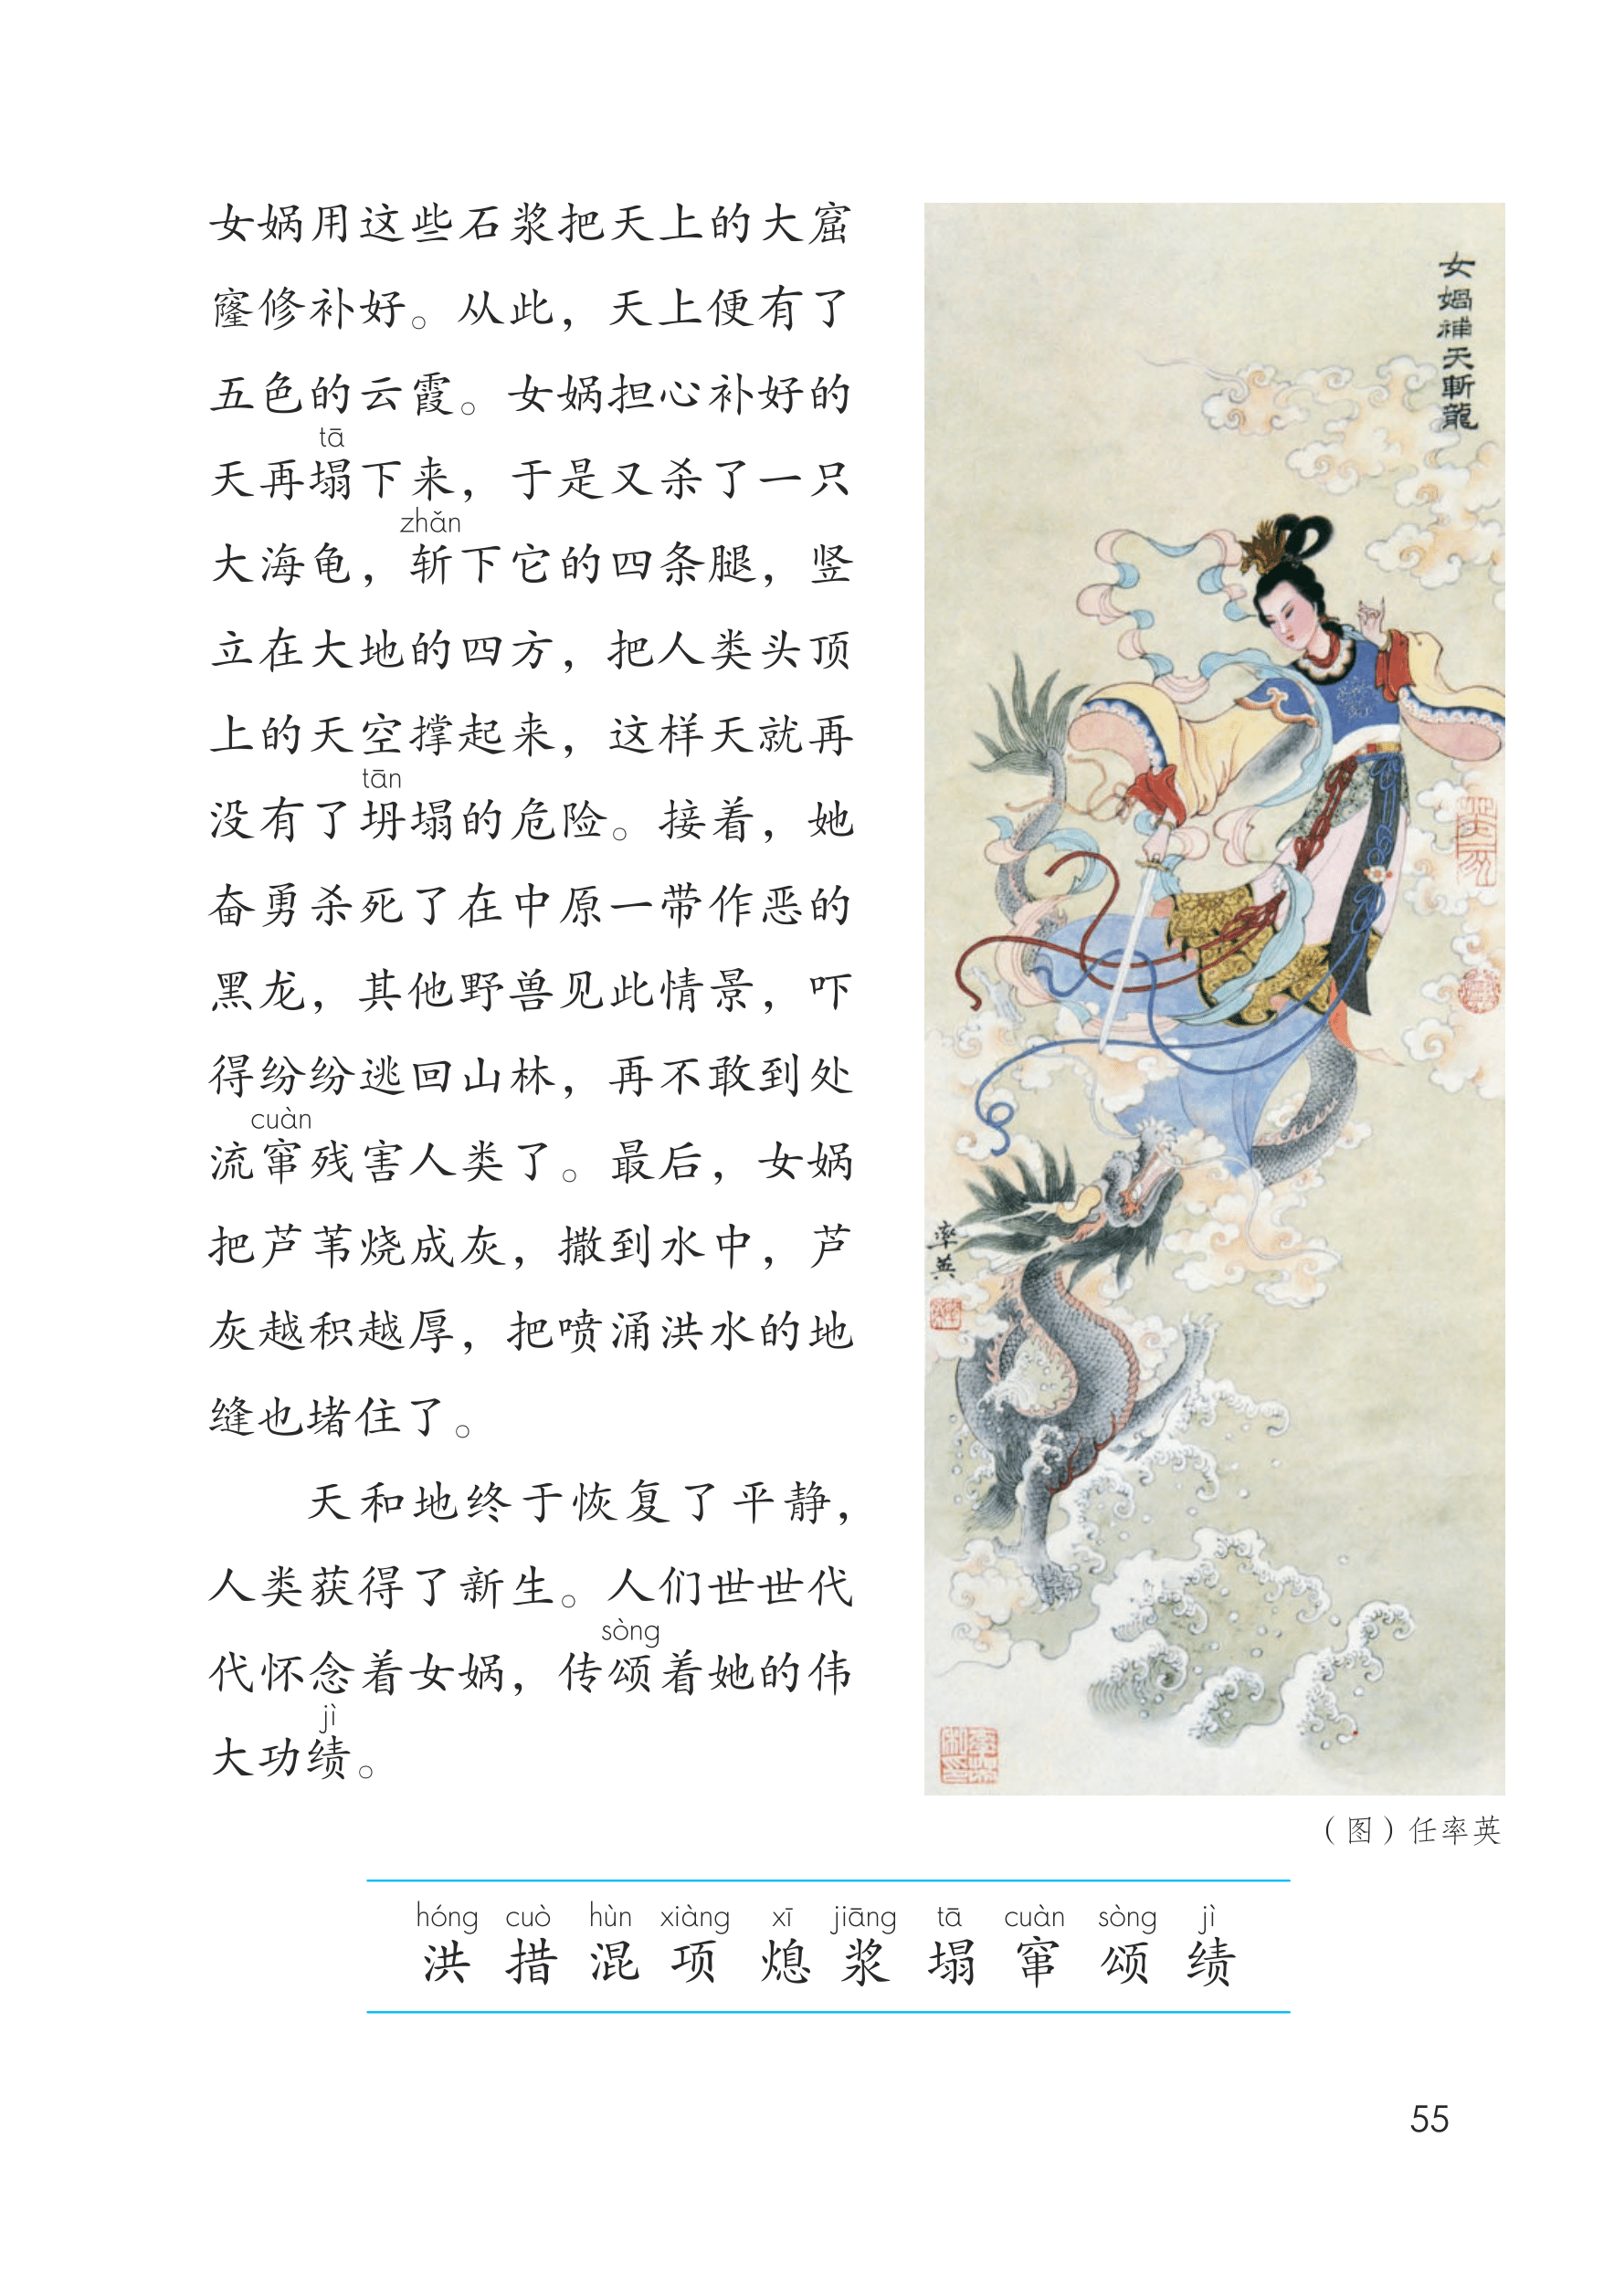 女娲用这些石浆把天上的大窟
窿修补好。从此，天上便有了
五色的云霞。女娲担心补好的
tā
天再塌下来，于是又杀了一只
zhǎn
大海龟，斩下它的四条腿，竖
立在大地的四方，把人类头顶
上的天空撑起来，这样天就再
tān
没有了坍塌的危险。接着，她
奋勇杀死了在中原一带作恶的
黑龙，其他野兽见此情景，吓
得纷纷逃回山林，再不敢到处
cuàn
流窜残害人类了。最后，女娲
把芦苇烧成灰，撒到水中，芦
灰越积越厚，把喷涌洪水的地
缝也堵住了。
天和地终于恢复了平静，
人类获得了新生。人们世世代
sòng
代怀念着女娲，传颂着她的伟
jì
大功绩。
女媧補天斬龍
率英
（图）任率英
hóng cuò hùn xiàng xī jiāng tā cuàn sòng jì
洪 措 混 项 熄 浆 塌 窜 颂 绩
55